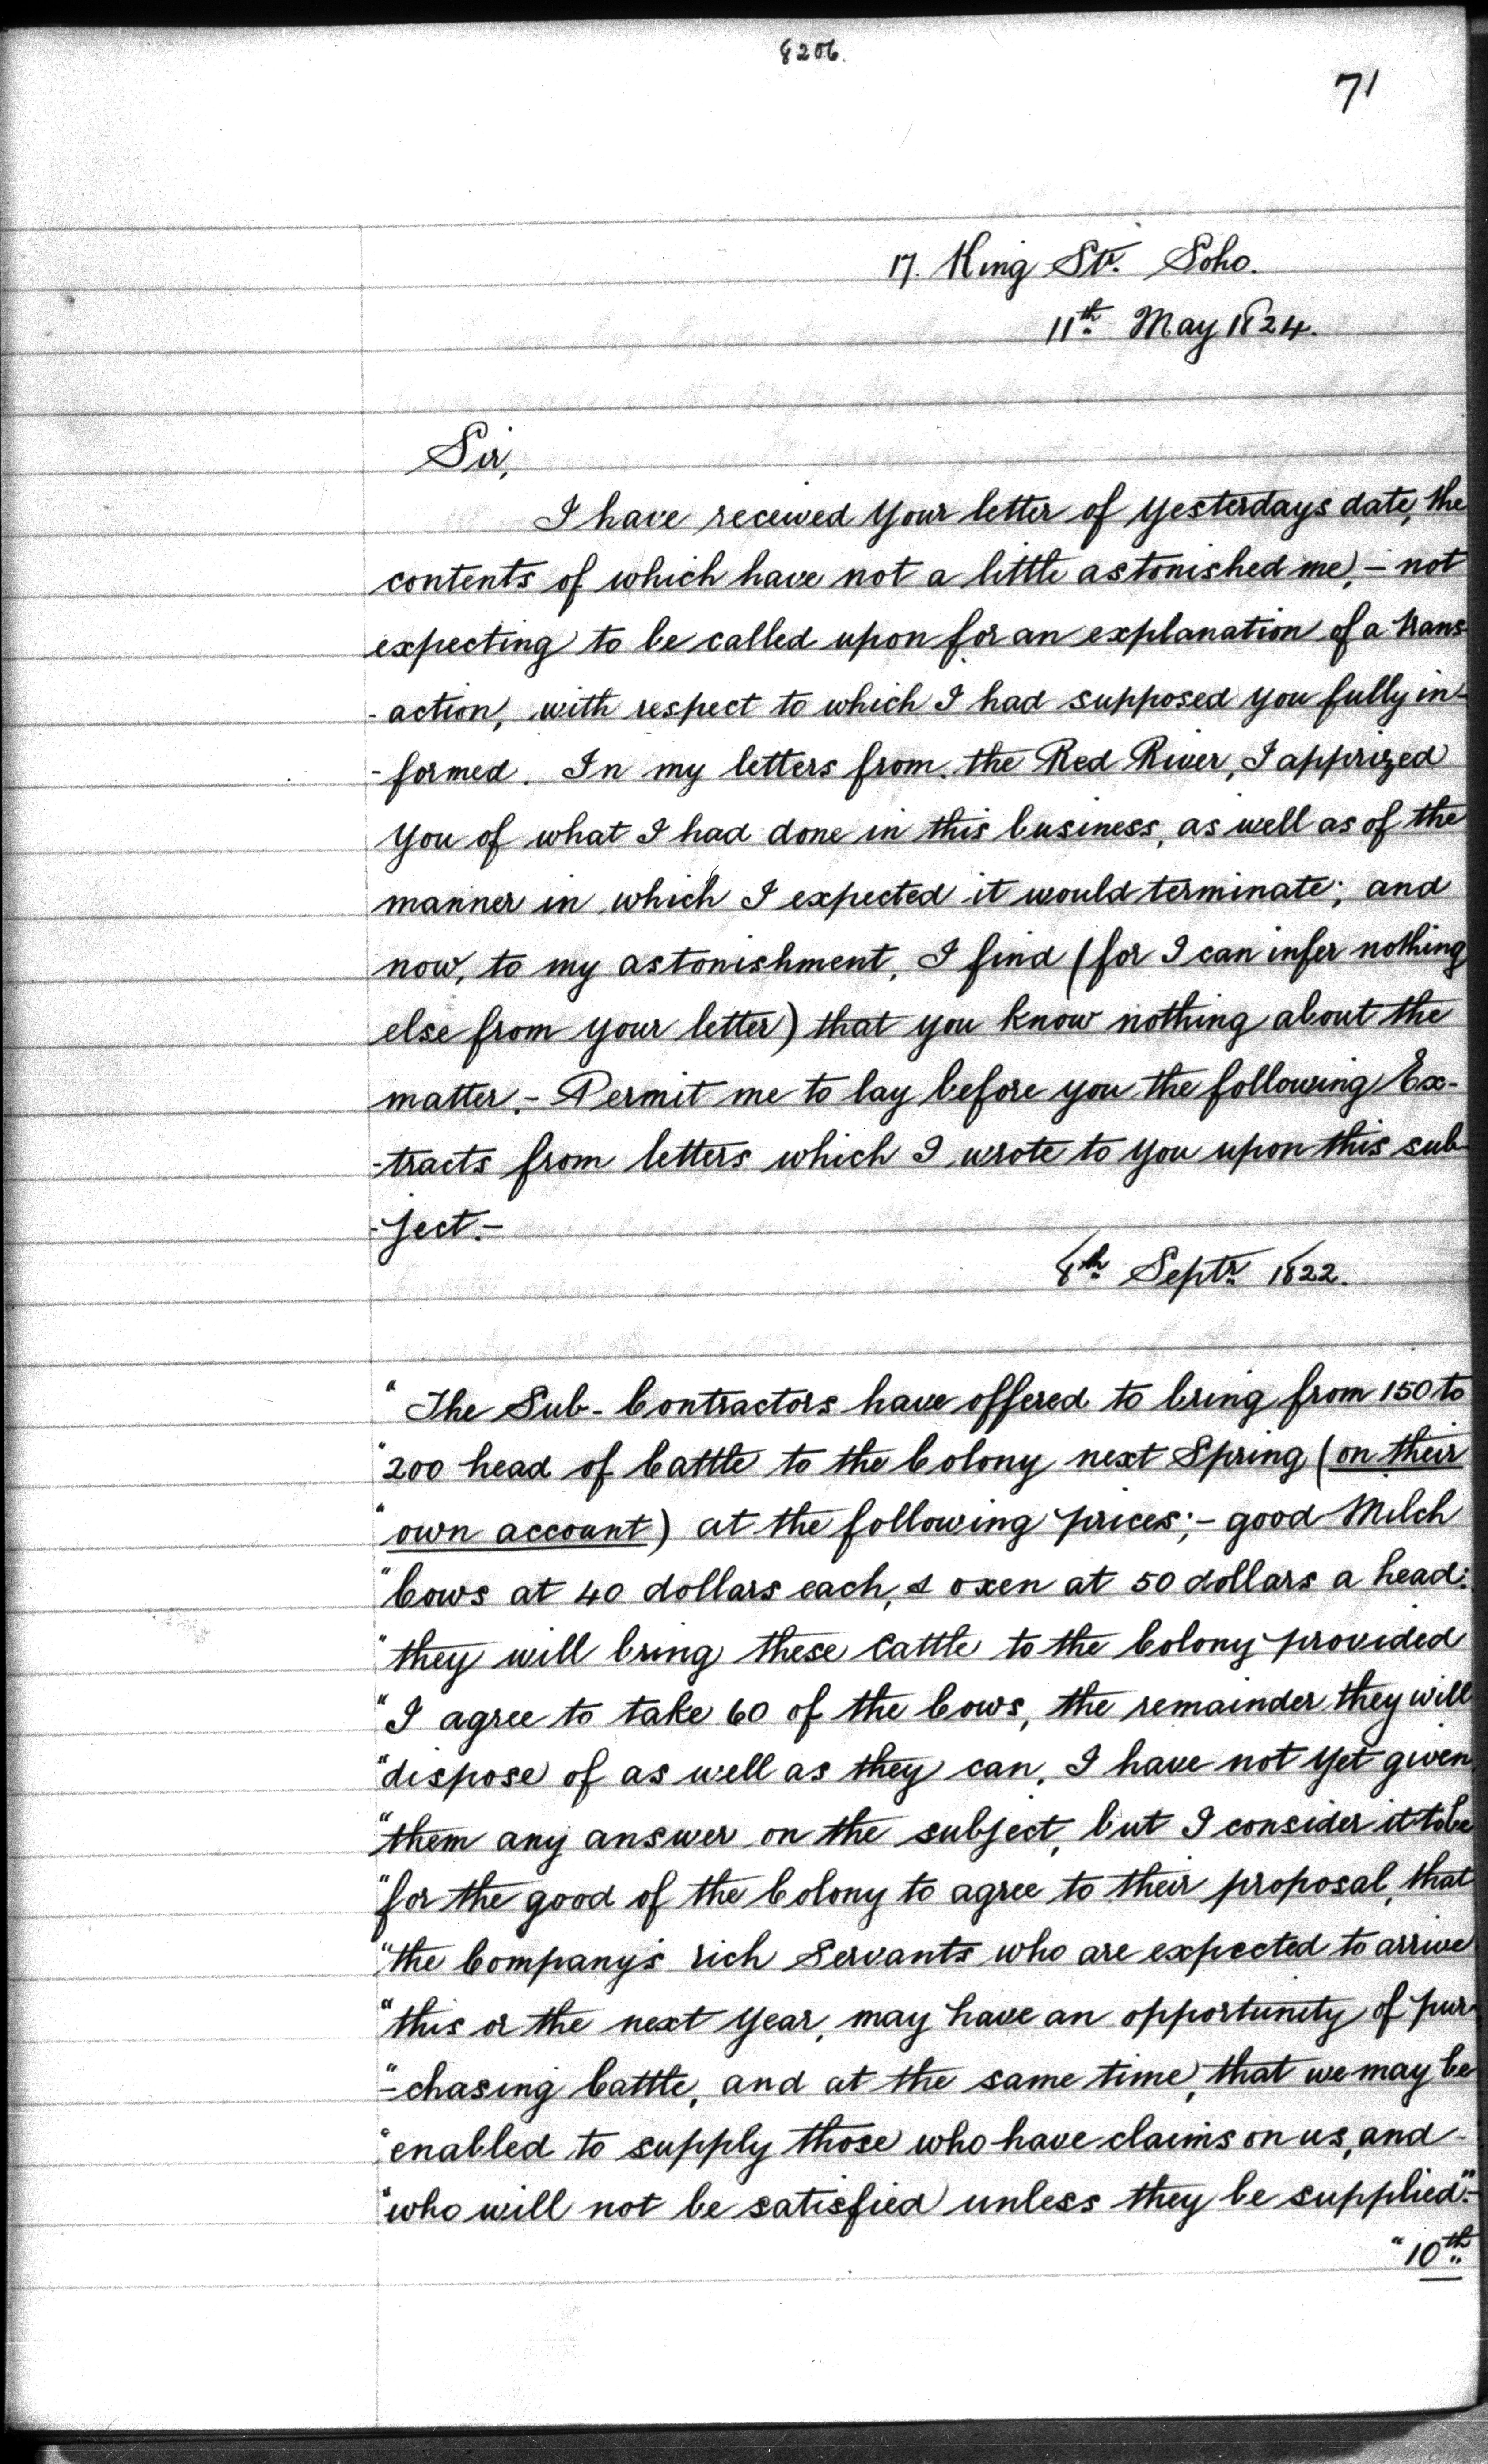 8206.
71
17. King Str. Soho.
11th May 1824.
Sir,
I have received your letter of yesterdays date, the
contents of which have not a little astonished me, – not
expecting to be called upon for an explanation of a trans
-action, with respect to which I had supposed you fully in-
-formed. In my letters from the Red River, I apprized
you of what I had done in this business, as well as of the
manner in which I expected it would terminate; and
now, to my astonishment, I find (for I can infer nothing
else from your letter) that you know nothing about the
matter. – Permit me to lay before you the following Ex-
-tracts from letters which I wrote to you upon this sub-
-ject. –
8th Septr 1822.
" The Sub-Contractors have offered to bring from 150 to
" 200 head of Cattle to the Colony next Spring (on their
" own account) at the following prices; – good Milch
" Cows at 40 dollars each, & oxen at 50 dollars a head:
" they will bring these Cattle to the Colony provided
" I agree to take 60 of the Cows, the remainder they will
" dispose of as well as they can. I have not yet given
" them any answer on the subject, but I consider it to be
" for the good of the Colony to agree to their proposal, that
" the Company's rich Servants who are expected to arrive
" this or the next year, may have an opportunity of pur
" -chasing Cattle, and at the same time, that we may be
" enabled to supply those who have claims on us, and –
" who will not be satisfied unless they be supplied." –
" 10th